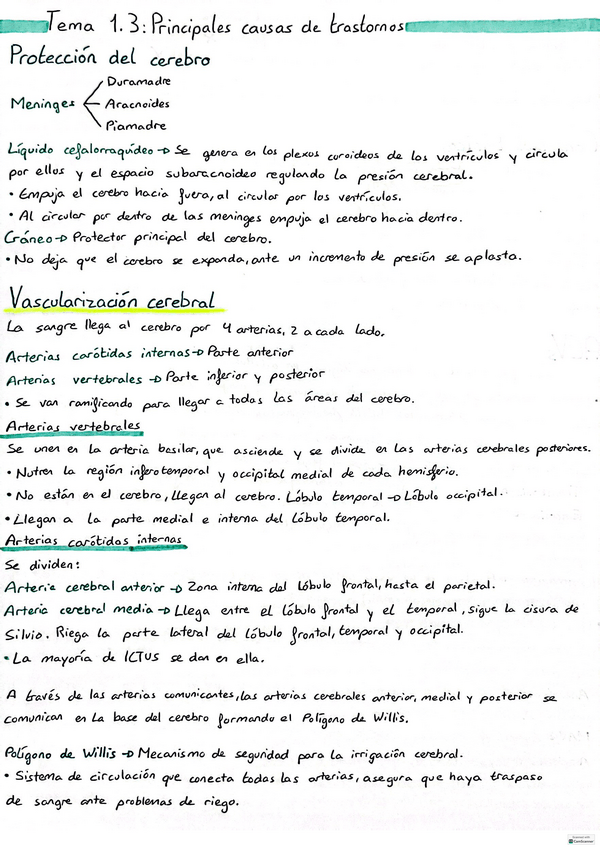 Tema 1.3: Principales causas de trastornos
Protección del cerebro
Duramadre
Meninges
Aracnoides
Piamadre
Líquido cefalorraquídeo → Se genera en los plexus coroideos de los ventrículos y circula
por ellos y el espacio subaracnoideo regulando la presión cerebral.
• Empuja el cerebro hacia fuera, al circular por los ventrículos.
• Al circular por dentro de las meninges empuja el cerebro hacia dentro.
Cráneo → Protector principal del cerebro.
• No deja que el cerebro se expanda, ante un incremento de presión se aplasta.
Vascularización cerebral
La sangre llega al cerebro por 4 arterias, 2 a cada lado.
Arterias carótidas internas → Parte anterior
Arterias vertebrales → Parte inferior y posterior
• Se van ramificando para llegar a todas las áreas del cerebro.
Arterias vertebrales
Se unen en la arteria basilar, que asciende y se divide en las arterias cerebrales posteriores.
• Nutren la región inferotemporal y occipital medial de cada hemisferio.
• No están en el cerebro, llegan al cerebro. Lóbulo temporal → Lóbulo occipital.
• Llegan a la parte medial e interna del lóbulo temporal.
Arterias carótidas internas
Se dividen:
Arteria cerebral anterior → Zona interna del lóbulo frontal, hasta el parietal.
Arteria cerebral media → Llega entre el lóbulo frontal y el temporal, sigue la cisura de
Silvio. Riega la parte lateral del lóbulo frontal, temporal y occipital.
• La mayoría de ICTUS se dan en ella.
A través de las arterias comunicantes, las arterias cerebrales anterior, medial y posterior se
comunican en la base del cerebro formando el Polígono de Willis.
Polígono de Willis → Mecanismo de seguridad para la irrigación cerebral.
• Sistema de circulación que conecta todas las arterias, asegura que haya traspaso
de sangre ante problemas de riego.
CamScanner